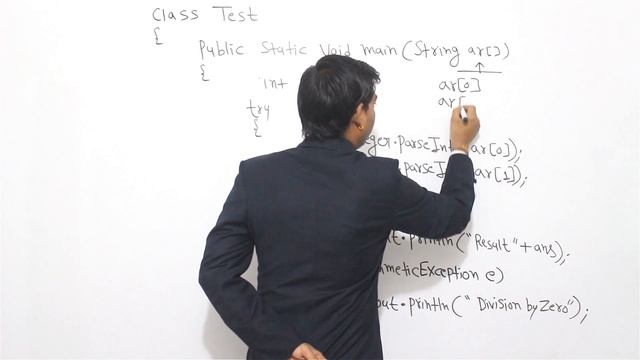 Class Test
{
Public Static Void main (String ar[])
{
int ar[0]
try ar[
{
eger.parseInt ar[0]);
.parseInt ar[1]);
ut.println("Result"+ans);
meticException e)
out.println("Division by Zero");